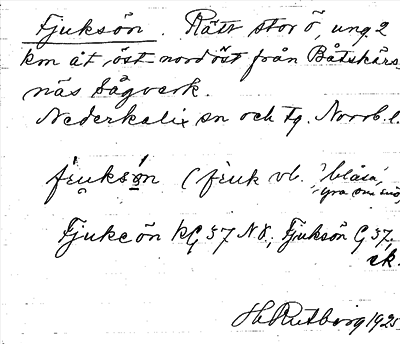 Fjuksön. Rätt stor ö, ung. 2
km åt öst nordöst från Båtskärs-
näs sågverk.
Nederkalix sn och tg. Norrb. l.
(fjuk vb. 'blåsa,
yra om snö'
Fjukeön kG 37 N8, Fjuksön G 37,
ek.
H. Rutberg 1925